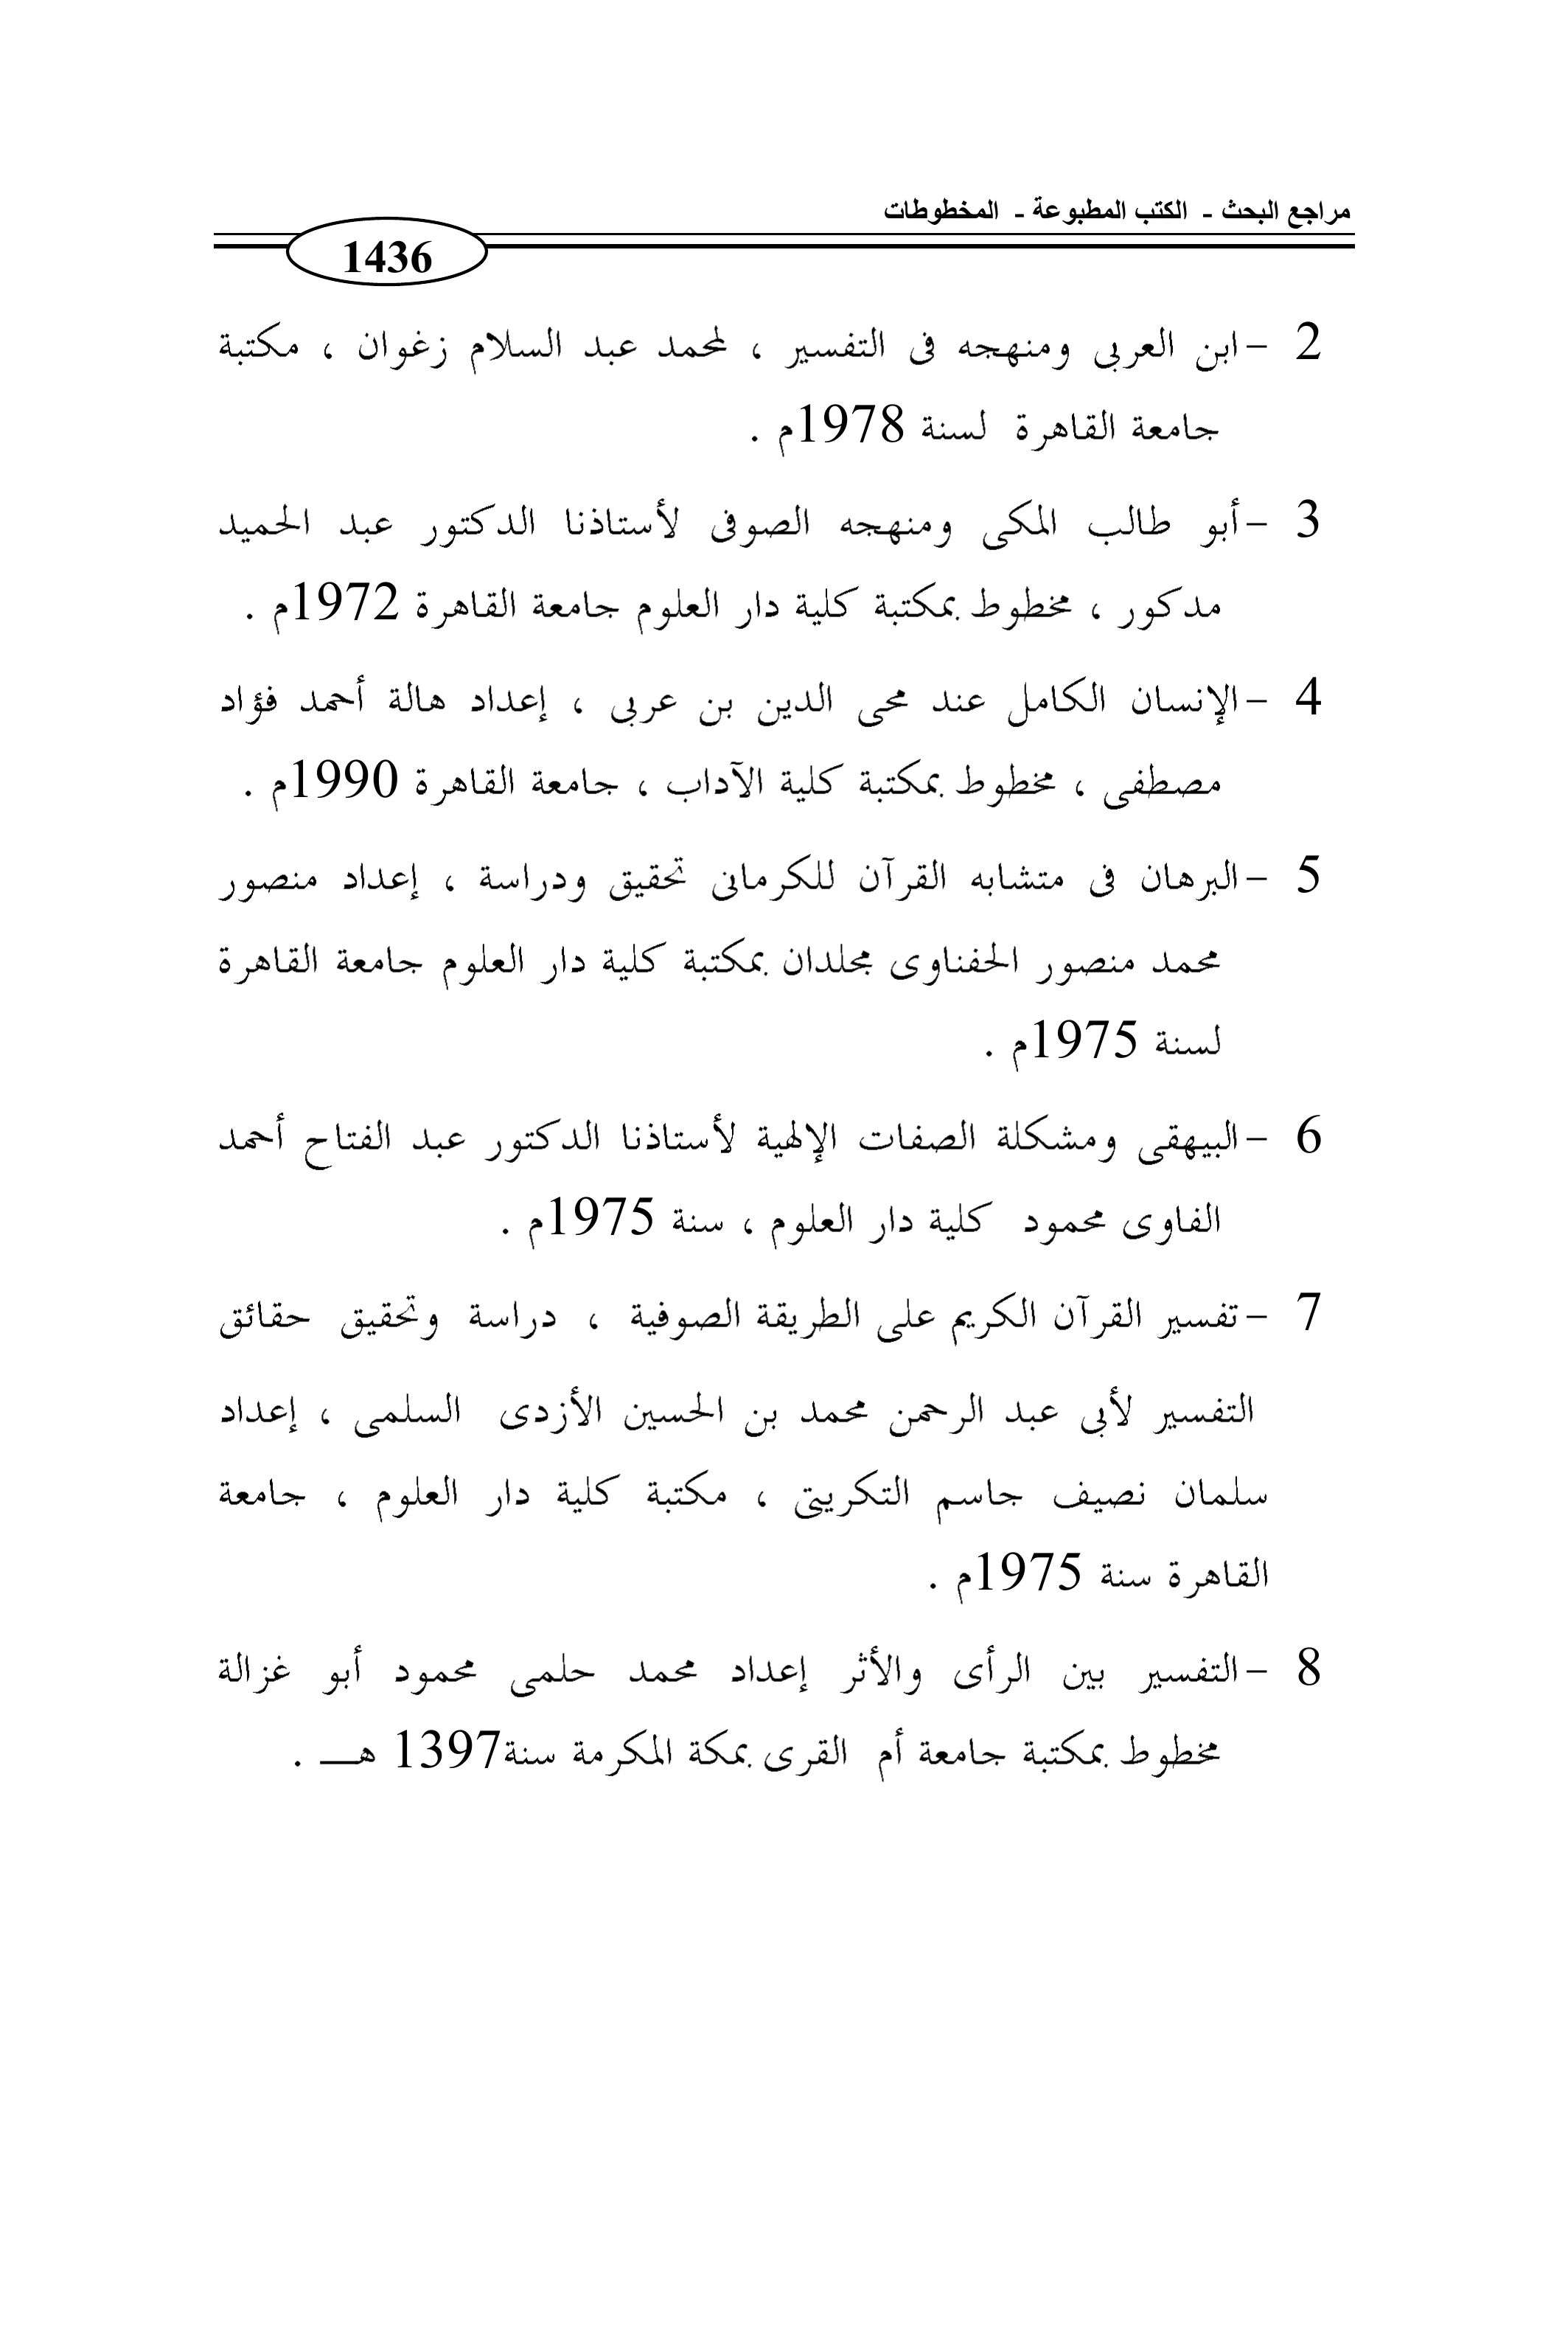 مراجع البحث - الكتب المطبوعة - المخطوطات
1436
2 -ابن العربى ومنهجه فى التفسير ، لمحمد عبد السلام زغوان ، مكتبة
جامعة القاهرة لسنة 1978م .
3 -أبو طالب المكى ومنهجه الصوفى لأستاذنا الدكتور عبد الحميد
مدكور ، مخطوط بمكتبة كلية دار العلوم جامعة القاهرة 1972م .
4 -الإنسان الكامل عند محى الدين بن عربى ، إعداد هالة أحمد فؤاد
مصطفى ، مخطوط بمكتبة كلية الآداب ، جامعة القاهرة 1990م .
5 -البرهان فى متشابه القرآن للكرمانى تحقيق ودراسة ، إعداد منصور
محمد منصور الحفناوى مجلدان بمكتبة كلية دار العلوم جامعة القاهرة
لسنة 1975م .
6 -البيهقى ومشكلة الصفات الإلهية لأستاذنا الدكتور عبد الفتاح أحمد
الفاوى محمود كلية دار العلوم ، سنة 1975م .
7 -تفسير القرآن الكريم على الطريقة الصوفية ، دراسة وتحقيق حقائق
التفسير لأبى عبد الرحمن محمد بن الحسين الأزدى السلمى ، إعداد
سلمان نصيف جاسم التكريتى ، مكتبة كلية دار العلوم ، جامعة
القاهرة سنة 1975م .
8 -التفسير بين الرأى والأثر إعداد محمد حلمى محمود أبو غزالة
مخطوط بمكتبة جامعة أم القرى بمكة المكرمة سنة1397 هــ .